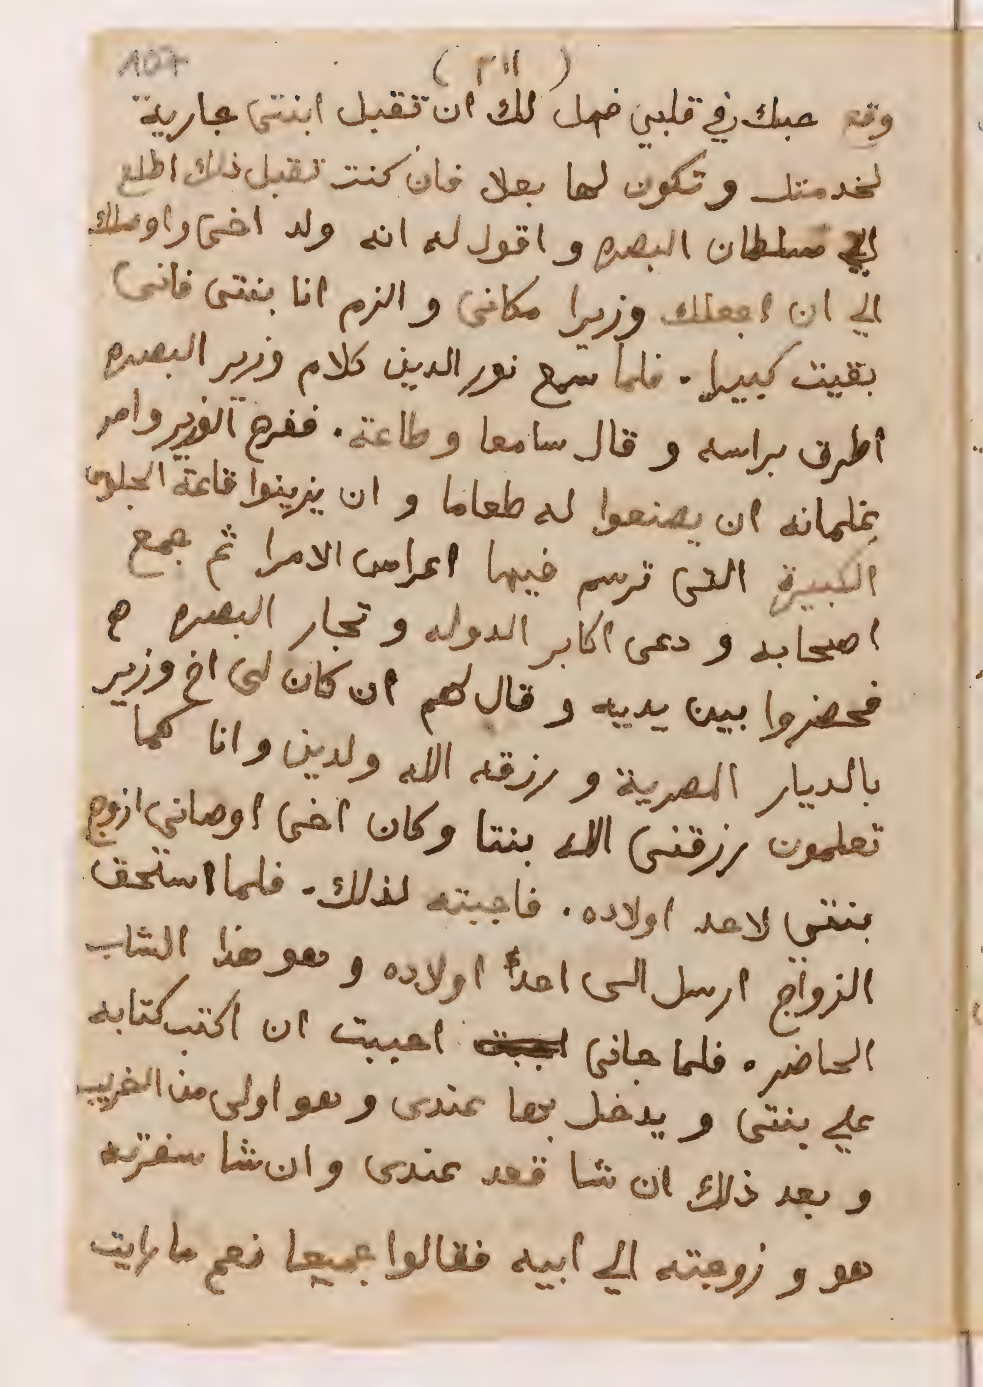 107
( ٢١١ )
وقع حبك في قلبي فهل لك ان تقبل ابنتي جارية
لخدمتك و تكون لها بعلا فان كنت تقبل ذلك اطلع
الي سلطان البصره و اقول له انه ولد اخي واوصلك
الي ان اجعلك وزيرا مكاني و الزم انا بنتي فاني
بقيت كبيرا . فلما سمع نور الدين كلام وزير البصره
اطرق براسه و قال سامعا و طاعة . ففرح الوزير وامر
بغلمانه ان يصنعوا له طعاما و ان يزينوا قاعة الجلوس
الكبيرة التي ترسم فيها اعراس الامرا ثم جمع
اصحابه و دعى اكابر الدوله و تجار البصره
فحضروا بين يديه و قال لهم ان كان لي اخ وزير
بالديار المصرية و رزقه الله ولدين وانا كما
تعلمون رزقني الله بنتا وكان اخي اوصاني ازوج
بنتي لاحد اولاده . فاجبته لذلك . فلما استحق
الزواج ارسل الى احد اولاده و هو هذا الشاب
الحاضر . فلما جاني احببت ان اكتب كتابه
علي بنتي و يدخل بها عندى و هو اولى من الغريب
و بعد ذلك ان شا قعد عندى و ان شا سفرته
هو و زوجته الي ابيه فقالوا جميعا نعم ما رايت